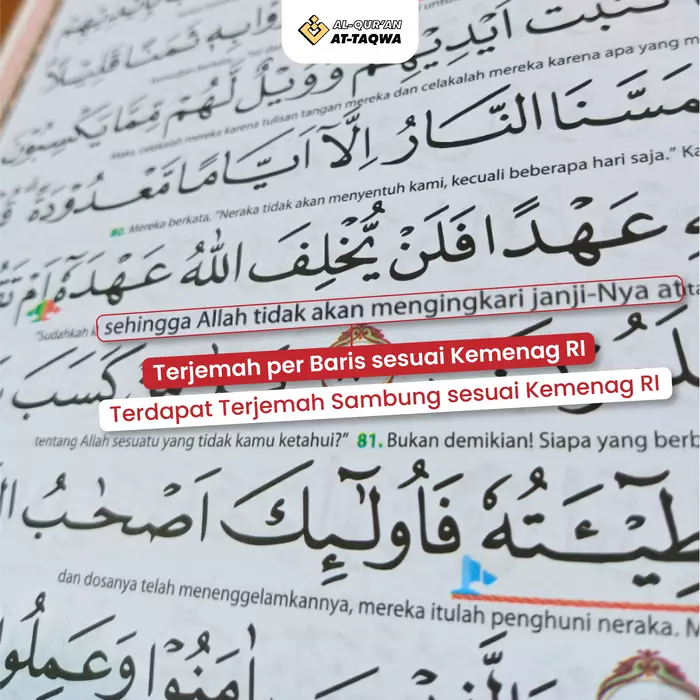 AL-QUR'AN
AT-TAQWA
بِهٖ ثَمَنًا قَلِيْلًا
كَتَبَتْ اَيْدِيْهِمْ وَوَيْلٌ لَّهُمْ مِّمَّا يَكْسِبُوْنَ
Maka, celakalah mereka karena tulisan tangan mereka dan celakalah mereka karena apa yang m
مَسَّنَا النَّارُ اِلَّآ اَيَّامًا مَّعْدُوْدَةً
80. Mereka berkata, "Neraka tidak akan menyentuh kami, kecuali beberapa hari saja." Ka
عَهْدًا فَلَنْ يُّخْلِفَ اللّٰهُ عَهْدَهٗٓ اَمْ
"Sudahkah k sehingga Allah tidak akan mengingkari janji-Nya at
Terjemah per Baris sesuai Kemenag RI
كَسَبَ
Terdapat Terjemah Sambung sesuai Kemenag RI
tentang Allah sesuatu yang tidak kamu ketahui?" 81. Bukan demikian! Siapa yang berb
طِيْۤـَٔتُهٗ فَاُولٰۤىِٕكَ اَصْحٰبُ
dan dosanya telah menenggelamkannya, mereka itulah penghuni neraka. M
اٰمَنُوْا وَعَمِلُوا